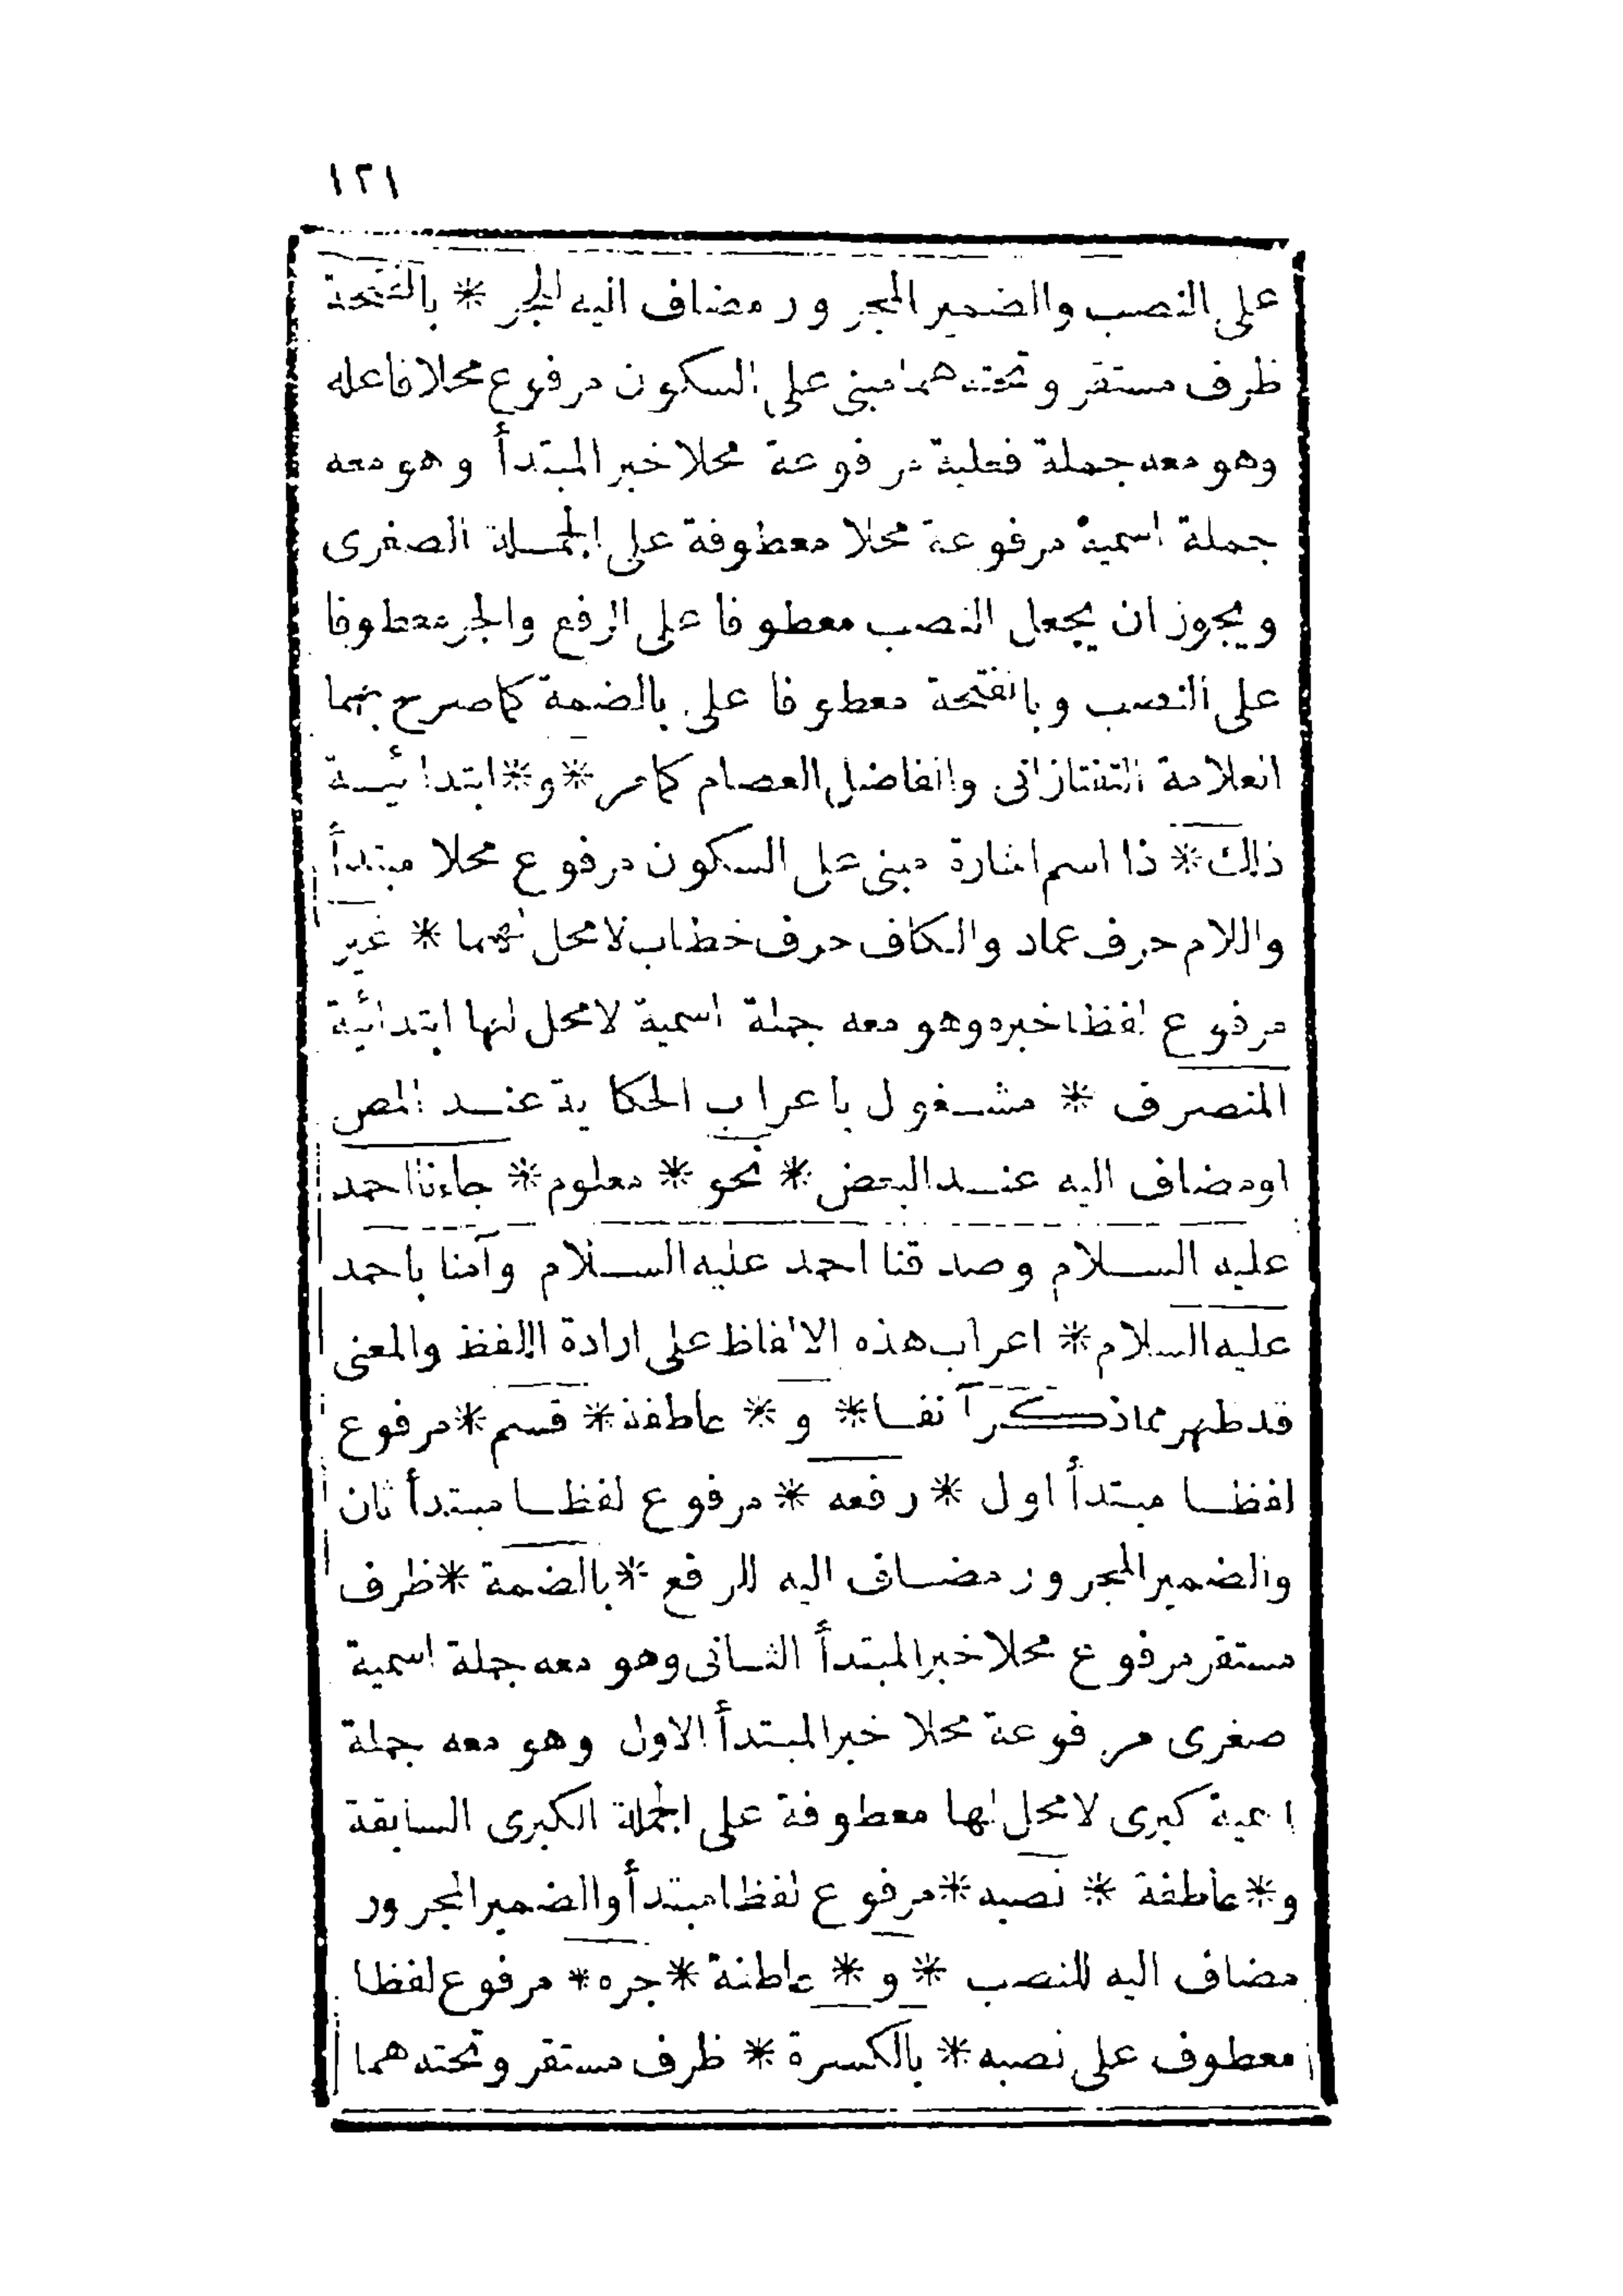 ١٢١
على النصب والضمير المجرور مضاف اليه للجر * بالفتحة
ظرف مستقر وتحته هما مبنى على السكون مرفوع محلا فاعله
وهو معه جملة فعلية مرفوعة محلا خبر المبتدأ وهو معه
جملة اسمية مرفوعة محلا معطوفة على الجملة الصغرى
ويجوز ان يجعل النصب معطوفا على الرفع والجر معطوفا
على النصب وبالفتحة معطوفا على بالضمة كما صرح بهما
العلامة التفتازانى والفاضل العصام كما مر * و * ابتدائية
ذلك * ذا اسم اشارة مبنى على السكون مرفوع محلا مبتدأ
واللام حرف عماد والكاف حرف خطاب لا محل لهما * غير
مرفوع لفظا خبره وهو معه جملة اسمية لا محل لها ابتدائية
المنصرف * مشغول باعراب الحكاية عند المص
اومضاف اليه عند البعض * نحو * معلوم * جاءنا احمد
عليه السلام وصدقنا احمد عليه السلام وآمنا باحمد
عليه السلام * اعراب هذه الالفاظ على ارادة اللفظ والمعنى
قد ظهر مما ذكر آنفا * و * عاطفة * قسم * مرفوع
لفظا مبتدأ اول * رفعه * مرفوع لفظا مبتدأ ثان
والضمير المجرور مضاف اليه للرفع * بالضمة * ظرف
مستقر مرفوع محلا خبر المبتدأ الثانى وهو معه جملة اسمية
صغرى مرفوعة محلا خبر المبتدأ الاول وهو معه جملة
اسمية كبرى لا محل لها معطوفة على الجملة الكبرى السابقة
و * عاطفة * نصبه * مرفوع لفظا مبتدأ والضمير المجرور
مضاف اليه للنصب * و * عاطفة * جره * مرفوع لفظا
معطوف على نصبه * بالكسرة * ظرف مستقر وتحته هما